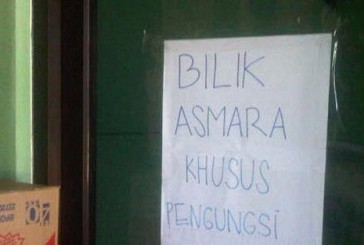 BILIK
ASMARA
KHUSUS
PENGUNGSi